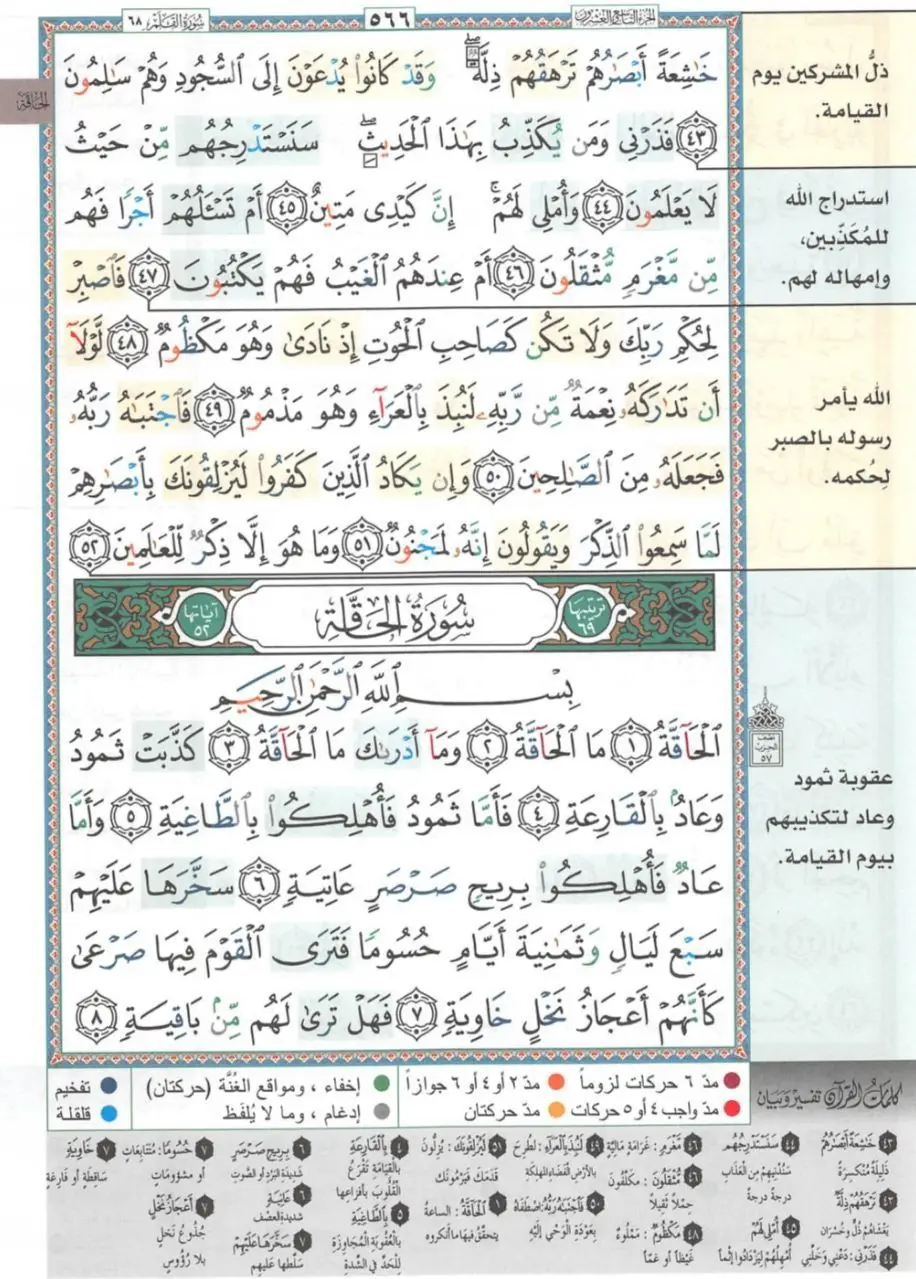 الجزء التاسع والعشرون
٥٦٦
سُورَةُ القَلَم ٦٨
خَٰشِعَةً أَبْصَٰرُهُمْ تَرْهَقُهُمْ ذِلَّةٌ ۖ وَقَدْ كَانُوا۟ يُدْعَوْنَ إِلَى ٱلسُّجُودِ وَهُمْ سَٰلِمُونَ
٤٣ فَذَرْنِى وَمَن يُكَذِّبُ بِهَٰذَا ٱلْحَدِيثِ ۖ سَنَسْتَدْرِجُهُم مِّنْ حَيْثُ
لَا يَعْلَمُونَ ٤٤ وَأُمْلِى لَهُمْ ۚ إِنَّ كَيْدِى مَتِينٌ ٤٥ أَمْ تَسْـَٔلُهُمْ أَجْرًا فَهُم
مِّن مَّغْرَمٍ مُّثْقَلُونَ ٤٦ أَمْ عِندَهُمُ ٱلْغَيْبُ فَهُمْ يَكْتُبُونَ ٤٧ فَٱصْبِرْ
لِحُكْمِ رَبِّكَ وَلَا تَكُن كَصَاحِبِ ٱلْحُوتِ إِذْ نَادَىٰ وَهُوَ مَكْظُومٌ ٤٨ لَّوْلَآ
أَن تَدَٰرَكَهُۥ نِعْمَةٌ مِّن رَّبِّهِۦ لَنُبِذَ بِٱلْعَرَآءِ وَهُوَ مَذْمُومٌ ٤٩ فَٱجْتَبَٰهُ رَبُّهُۥ
فَجَعَلَهُۥ مِنَ ٱلصَّٰلِحِينَ ٥٠ وَإِن يَكَادُ ٱلَّذِينَ كَفَرُوا۟ لَيُزْلِقُونَكَ بِأَبْصَٰرِهِمْ
لَمَّا سَمِعُوا۟ ٱلذِّكْرَ وَيَقُولُونَ إِنَّهُۥ لَمَجْنُونٌ ٥١ وَمَا هُوَ إِلَّا ذِكْرٌ لِّلْعَٰلَمِينَ ٥٢
ترتيبها ٦٩
سُورَةُ الحَاقَّةِ
آياتها ٥٢
بِسْمِ ٱللَّهِ ٱلرَّحْمَٰنِ ٱلرَّحِيمِ
ٱلْحَآقَّةُ ١ مَا ٱلْحَآقَّةُ ٢ وَمَآ أَدْرَىٰكَ مَا ٱلْحَآقَّةُ ٣ كَذَّبَتْ ثَمُودُ
وَعَادٌۢ بِٱلْقَارِعَةِ ٤ فَأَمَّا ثَمُودُ فَأُهْلِكُوا۟ بِٱلطَّاغِيَةِ ٥ وَأَمَّا
عَادٌ فَأُهْلِكُوا۟ بِرِيحٍ صَرْصَرٍ عَاتِيَةٍ ٦ سَخَّرَهَا عَلَيْهِمْ
سَبْعَ لَيَالٍ وَثَمَٰنِيَةَ أَيَّامٍ حُسُومًا فَتَرَى ٱلْقَوْمَ فِيهَا صَرْعَىٰ
كَأَنَّهُمْ أَعْجَازُ نَخْلٍ خَاوِيَةٍ ٧ فَهَلْ تَرَىٰ لَهُم مِّنۢ بَاقِيَةٍ ٨
ذلُّ المشركين يوم
القيامة.
استدراج الله
للمُكَذِّبين،
وإمهاله لهم.
الله يأمر
رسوله بالصبر
لِحُكمه.
نصف
الحزب
٥٧
عقوبة ثمود
وعاد لتكذيبهم
بيوم القيامة.
الحاقة
مدّ ٦ حركات لزوماً
مدّ ٢ أو ٤ أو ٦ جوازاً
إخفاء ، ومواقع الغُنَّة (حركتان)
تفخيم
مدّ واجب ٤ أو ٥ حركات
مدّ حركتان
إدغام ، وما لا يُلفَظ
قلقلة
كلمات القرآن تفسير وبيان
٤٣ خَشِعَةً أَبْصَرُهُمْ
ذَلِيلَةً مُنْكَسِرَةً
٤٣ تَرْهَقُهُمْ ذِلَّةٌ
يَغْشاهُمْ ذُلٌّ وخُسْران
٤٤ فَذَرْنِي : دَعْنِي وَخَلِّنِي
٤٤ سَنَسْتَدْرِجُهُم
سَنُدْنِيهِمْ مِنَ العَذَابِ
درجة درجة
٤٥ أُمْلِي لَهُمْ
أُمْهِلُهُمْ لِيَزْدَادُوا إثْماً
٤٦ مَغْرَمٍ : غَرَامَةٍ مَالِيَّةٍ
٤٦ مُثْقَلُونَ : مُكَلَّفُونَ
حِمْلاً ثَقِيلاً
٤٨ مَكْظُومٌ : مَمْلُوءٌ
غَيْظاً أو غمّاً
٤٩ لَنُبِذَ بِالْعَرَاءِ : لَطُرِحَ
بالأرْضِ الفَضَاءِ المُهْلِكَةِ
٥٠ فَاجْتَبَهُ رَبُّهُ : اصْطَفَاهُ
بِعَوْدَةِ الوَحْيِ إلَيْهِ
٥١ لَيُزْلِقُونَكَ : يُزِلُّونَ
قَدَمَكَ فَيَرْمُونَكَ
١ الْحَاقَّةُ : الساعةُ
يَتحقّقُ فيها ما أنْكروه
٤ بِالْقَارِعَةِ
بالقِيَامَةِ تَقْرَعُ
القُلُوبَ بأفزاعِها
٥ بِالطَّاغِيَةِ
بالعُقُوبَةِ المُجَاوِزَةِ
لِلْحَدِّ في الشِّدَّة
٦ بِرِيحٍ صَرْصَرٍ
شَدِيدَةِ البَرْدِ أو الصَّوْتِ
٦ عَاتِيَةٍ
شديدةِ العَصْف
٧ سَخَّرَهَا عَلَيْهِمْ
سَلَّطها عليهم
٧ حُسُومًا : مُتَتابِعَاتٍ
أو مَشْؤومَاتٍ
٧ أَعْجَازُ نَخْلٍ
جُذُوعُ نَخْلٍ
بلا رُؤُوسٍ
٧ خَاوِيَةٍ
سَاقِطَةٍ أو فارِغَةٍ